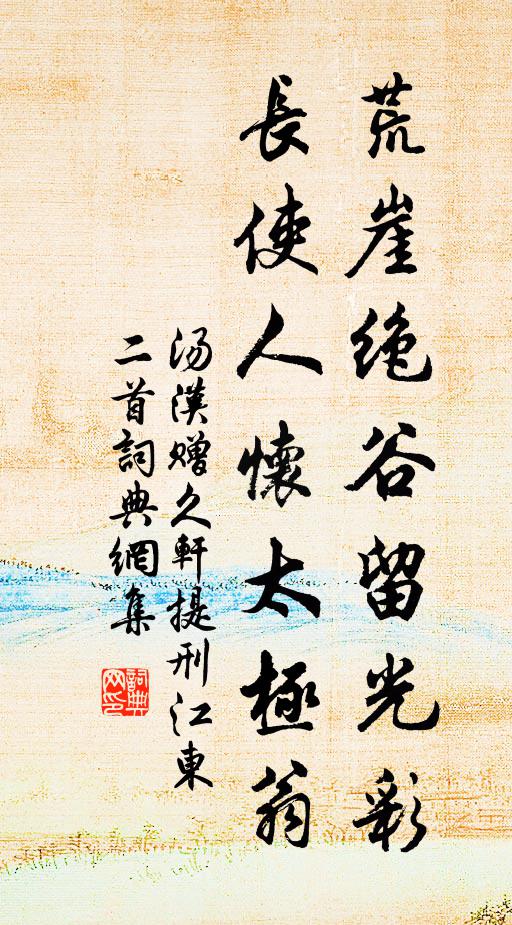 荒崖绝谷留光彩
長使人懷太極翁
汤漢贈久軒提刑江東
二首詞典網集
詞典
网印